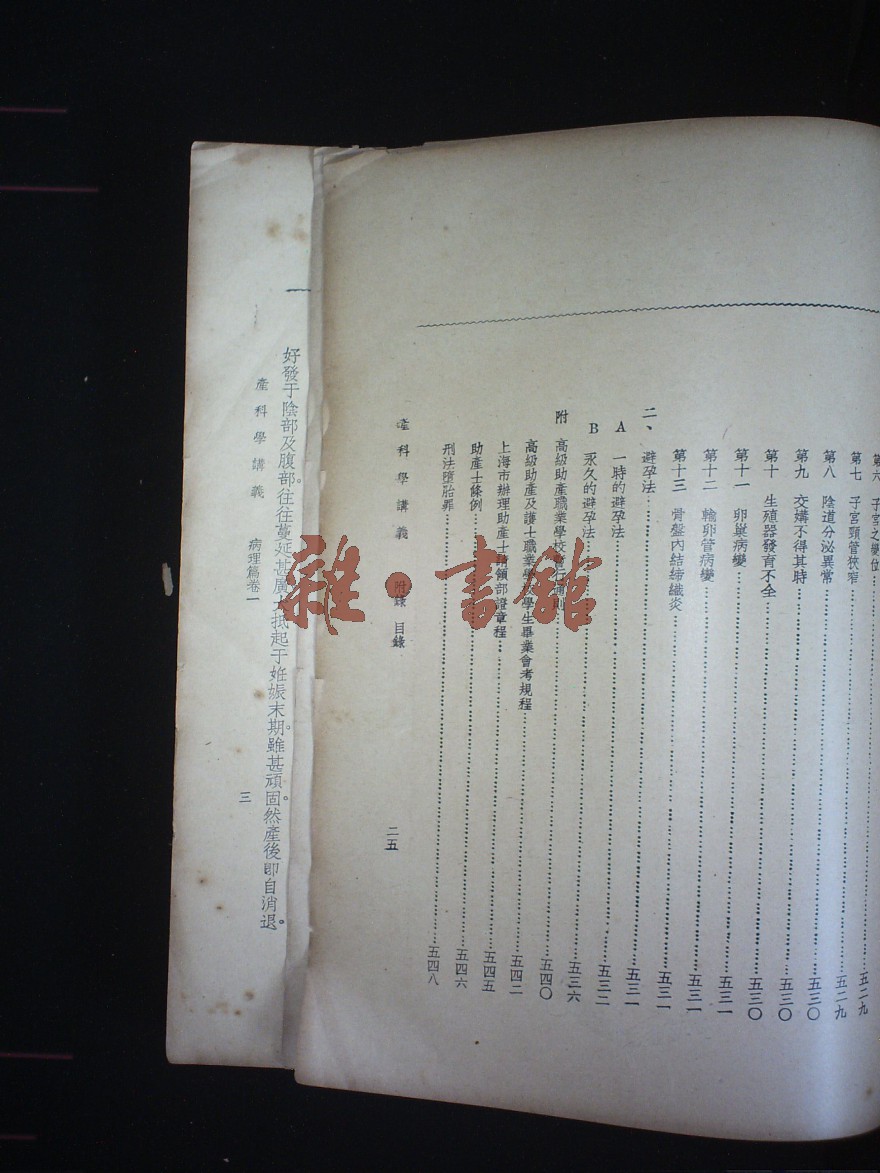 第六 子宮之變位……五二九
第七 子宮頸管狹窄……五二九
第八 陰道分泌異常……五三〇
第九 交媾不得其時……五三〇
第十 生殖器發育不全……五三〇
第十一 卵巢病變……五三一
第十二 輸卵管病變……五三一
第十三 骨盤內結締織炎……五三一
二、避孕法……五三一
A 一時的避孕法……五三二
B 永久的避孕法……五三六
附 高級助產職業學校暫行通則……五四〇
高級助產及護士職業學校學生畢業會考規程……五四二
上海市辦理助產士請領部證章程……五四五
助產士條例……五四六
刑法墮胎罪……五四八
產科學講義 附錄 目錄 二五
好發于陰部及腹部。往往蔓延甚廣。大抵起于姙娠末期。雖甚頑固。然產後即自消退。
產科學講義 病理篇卷一 三
雜·書館